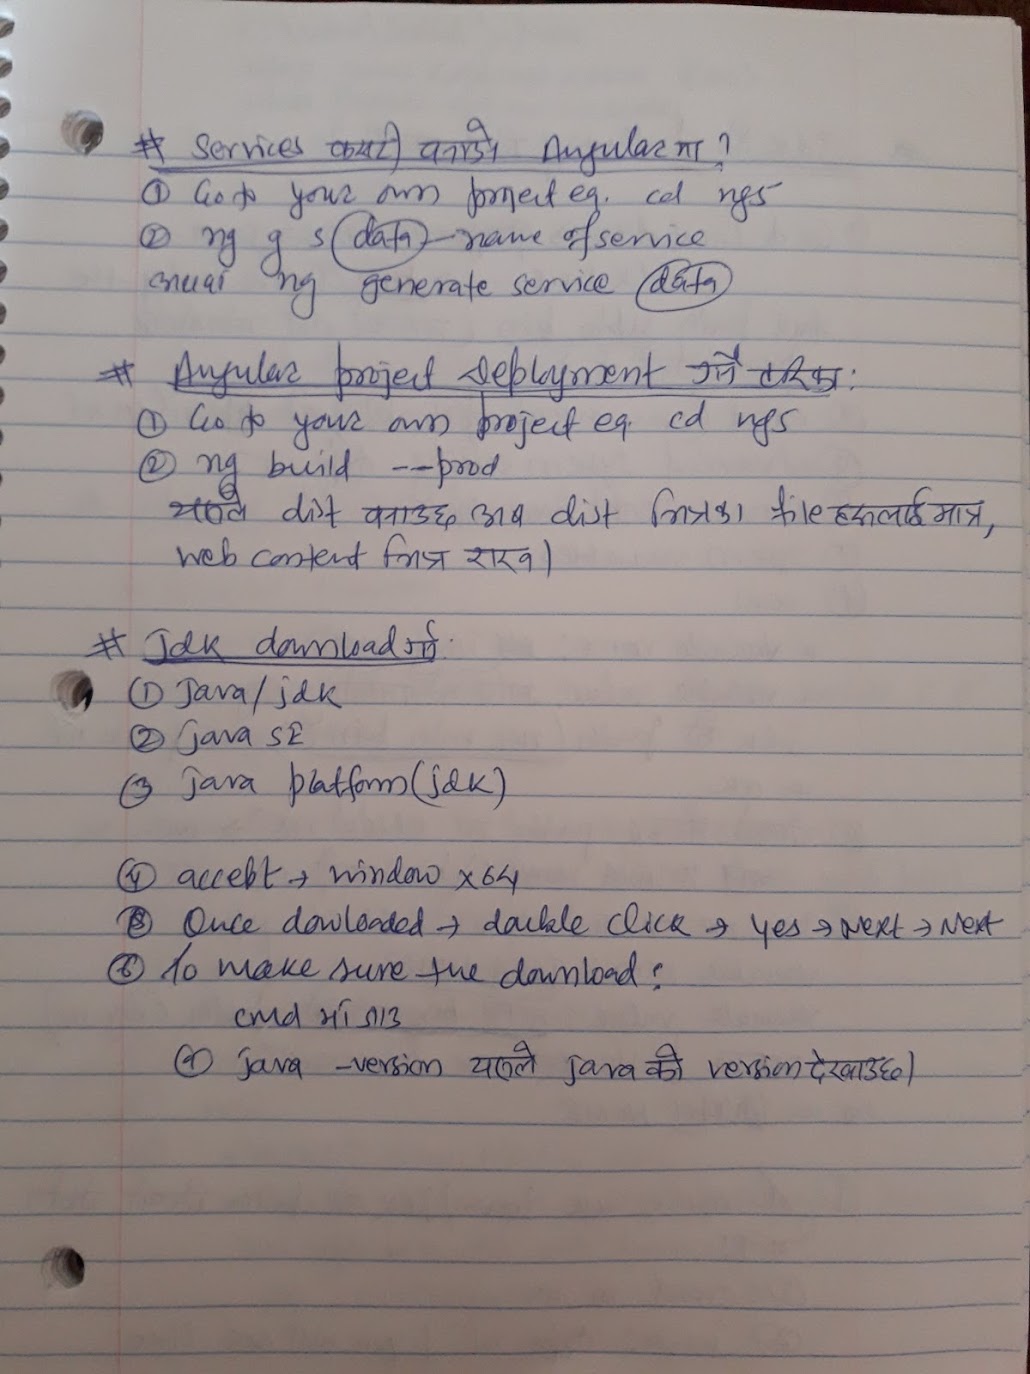 # Services कसरी बनाउने Angular मा ?
① Go to your own project eg. cd ng5
② ng g s (data) - name of service
अथवा ng generate service (data)
# Angular project Deployment गर्ने तरिका :
① Go to your own project eg. cd ng5
② ng build --prod
यसले dist बनाउछ अब dist भित्रका file हरूलाई मात्र,
web content भित्र राख्न।
# Jdk download गर्न :
① Java/jdk
② java SE
③ java platform (jdk)
④ accebt → window x64
⑤ Once dowloaded → double click → yes → Next → Next
⑥ To make sure the download :
cmd मा जाउ
① java -version यसले java को version देखाउछ।